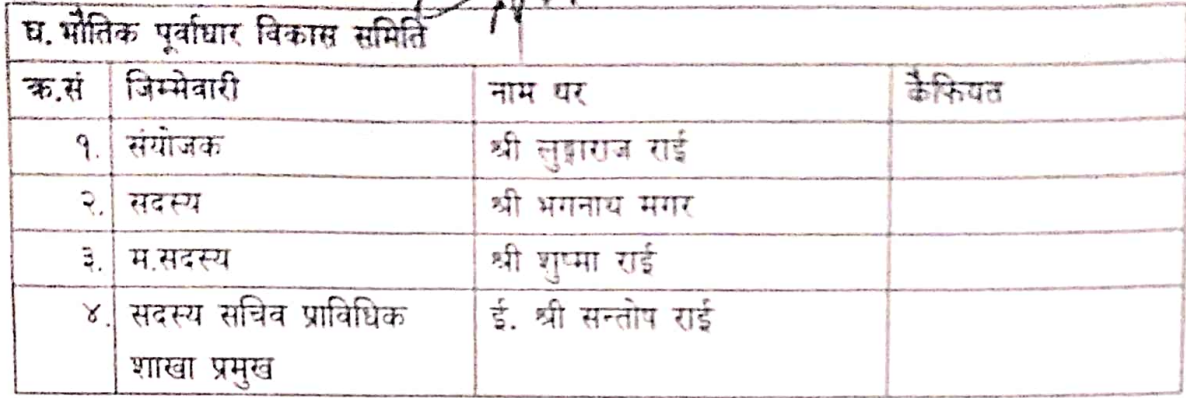 घ. भौतिक पूर्वाधार विकास समिति
क्र.सं जिम्मेवारी नाम थर कैफियत
१. संयोजक श्री लुद्राराज राई
२. सदस्य श्री भगनाथ मगर
३. म.सदस्य श्री शुष्मा राई
४. सदस्य सचिव प्राविधिक ई. श्री सन्तोष राई
शाखा प्रमुख